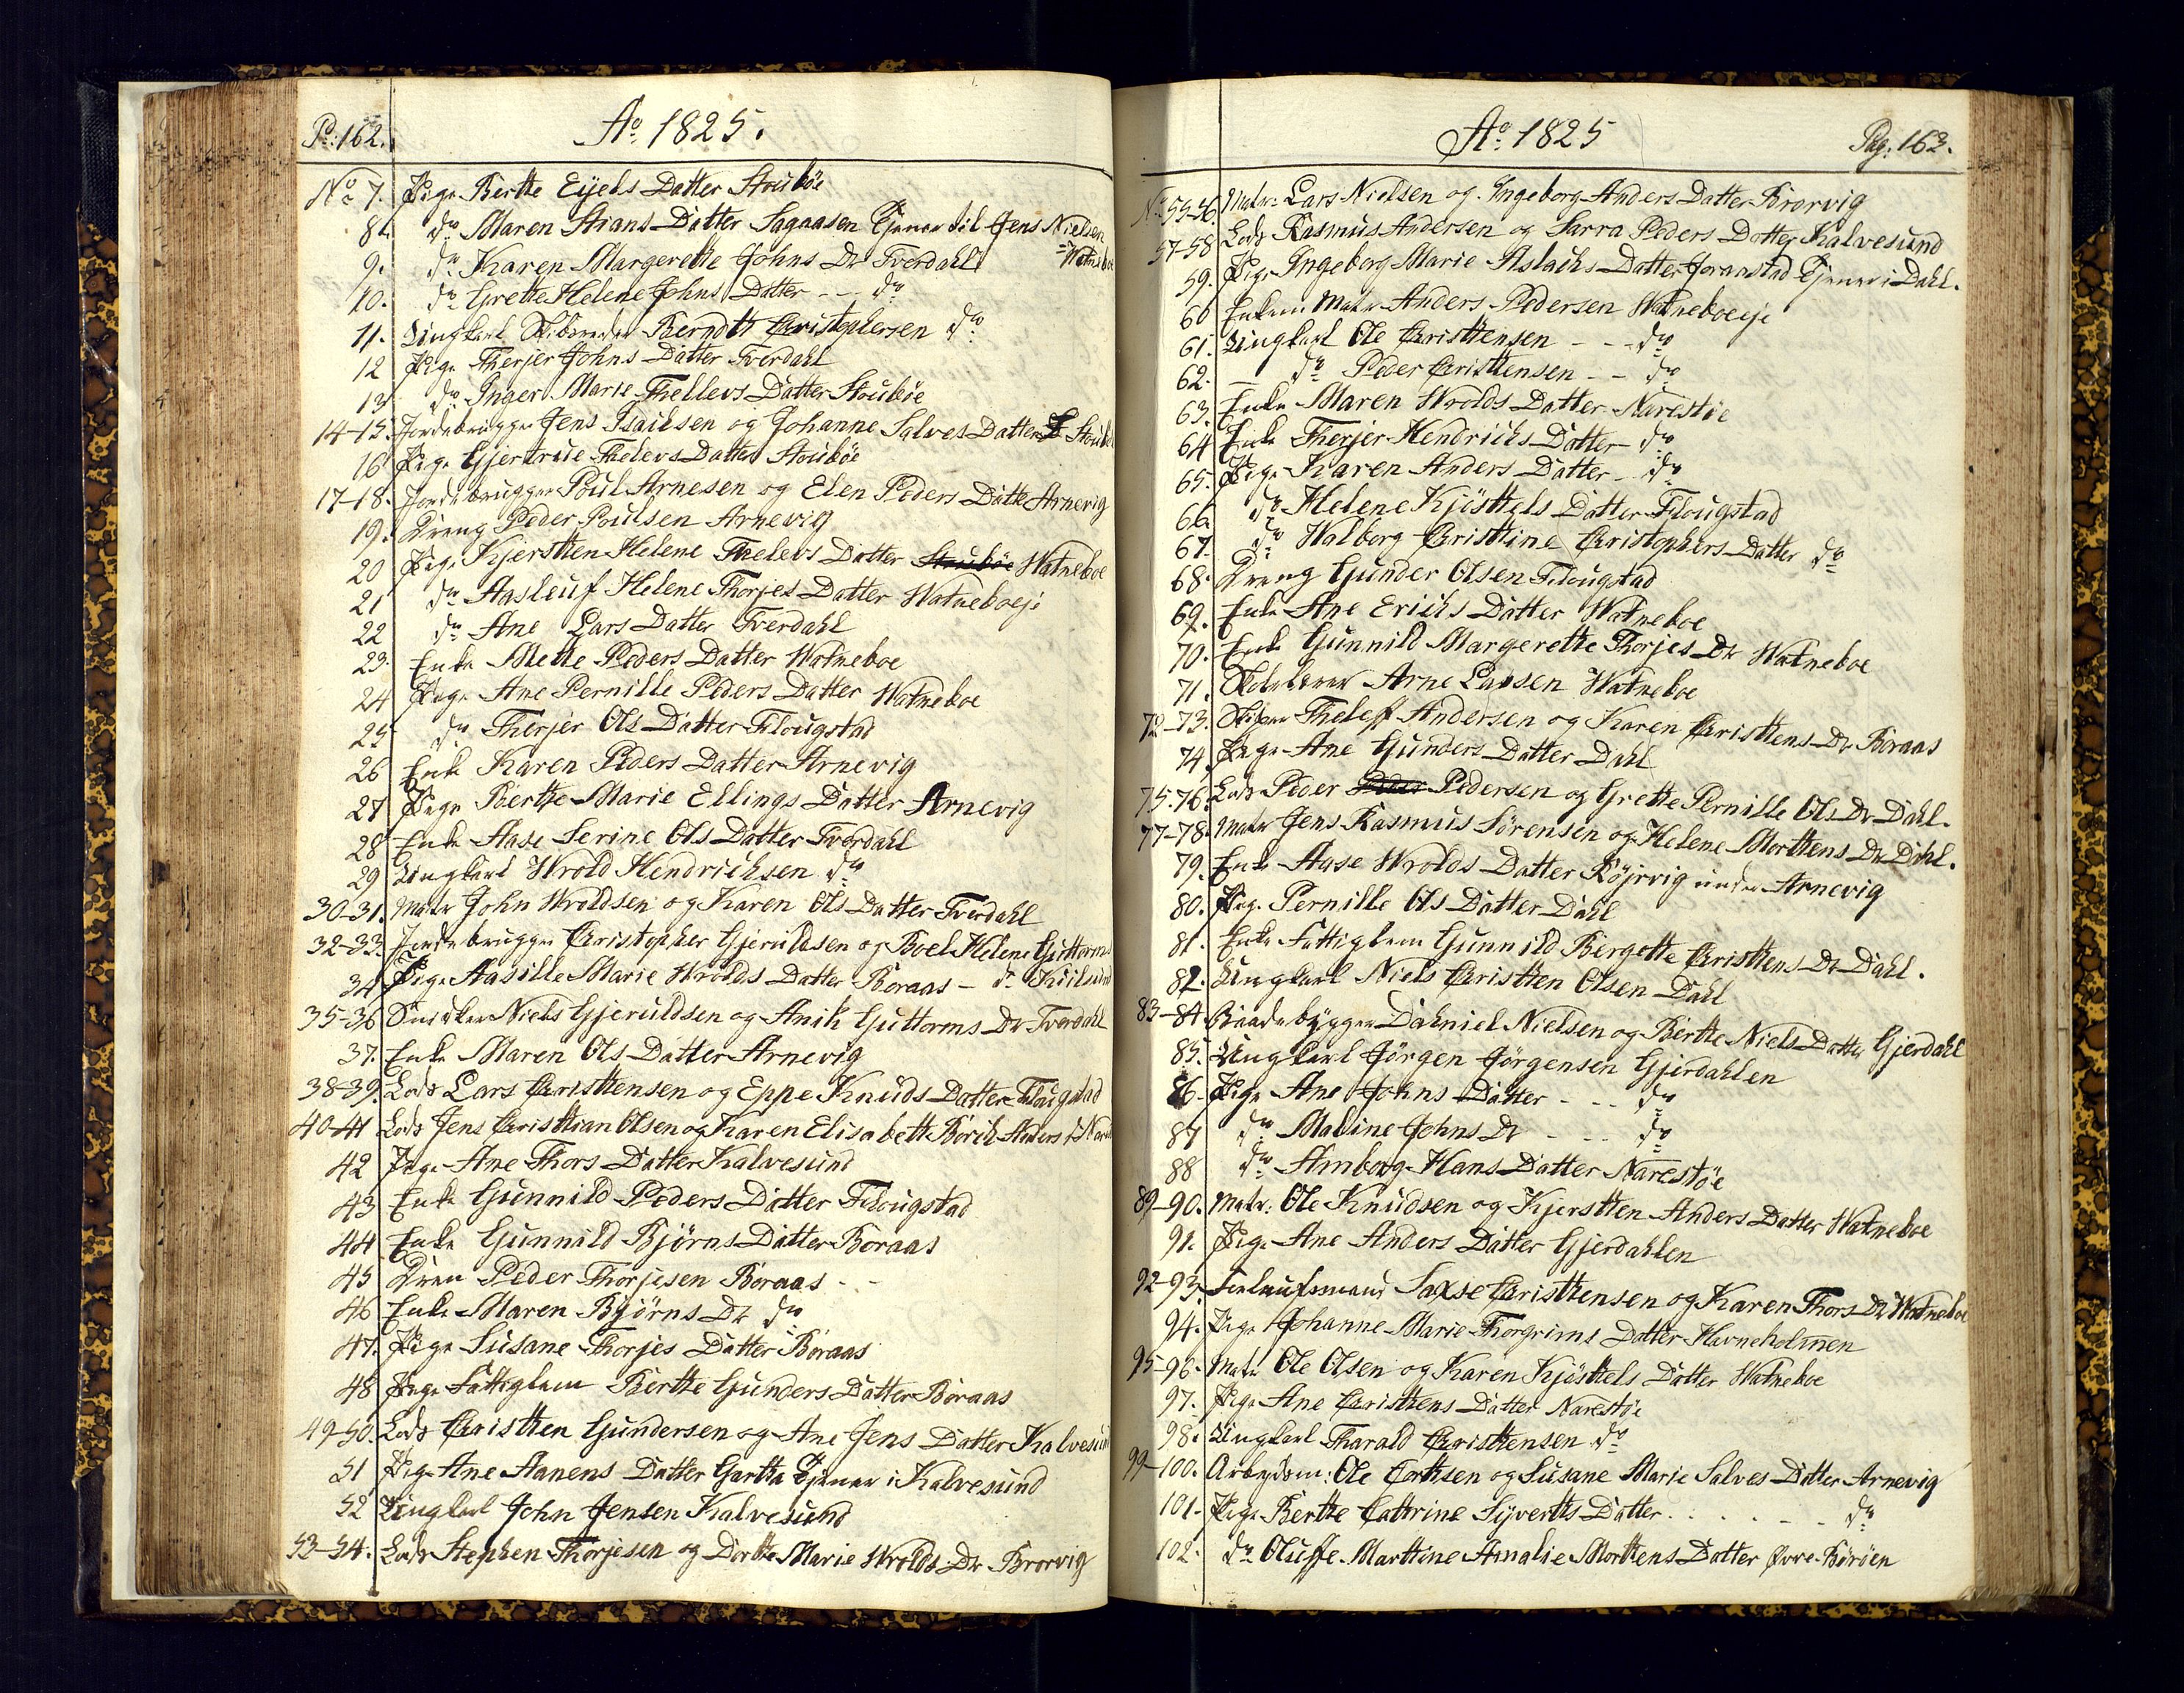 Pa: 162.
Ao. 1825.
No 7. Pige Berthe Eyels Datter Stoubøe
8. do Maren Stians Datter Sagaasen Tjener til Jens Nielsen
= Watnebo
9. do Karen Margerethe Johns Dr Tverdahl
10. do Grethe Helene Johns Datter - - do
11. Ungkarl Berndt Christophersen do
12 Pige Therjer Johns Datter Tverdahl
13 do Inger Marie Thellevs Datter Stoubøe
14-15. Jordebrugger Jens Isaiksen og Johanne Salves Datter Stoub
16 Pige Gjertrue Tholevs Datter Stoubøe
17-18. Jordebrugger Poul Arnesen og Elen Peders Datte Arnevig
19. Dreng Peder Poulsen Arnevig
20 Pige Kjersten Helene Thelevs Datter Stoubøe Watneboe
21 do Aasleuf Helene Thorjes Datter Watneboeje
22 do Ane Lars Datter Tverdahl
23. Enke Mette Peders Datter Watneboe
24 Pige Ane Pernille Peders Datter Watneboe
25 do Therjer Ols Datter Flougstad
26 Enke Karen Peders Datter Arnevig
27 Pige Berthe Marie Ellings Datter Arnevig
28 Enke Aase Serine Ols Datter Tverdahl
29 Ungkarl Wrold Hendrichsen do
30-31. Matr John Wroldsen og Karen Ols Datter Tverdahl
32-33. Jordebrugger Christopher Gjeruldsen og Boel Helene Guttorms
34 Pige Aasille Marie Wrolds Datter Boraas - d. Kuilsund
35-36 Snidker Niels Gjeruldsen og Anik Guttorms Dr Tverdahl
37. Enke Maren Ols Datter Arnevig
38-39. Lods Lars Christensen og Eppe Knuds Datter Flougstad
40-41 Lods Jens Christian Olsen og Karen Elisabeth Anders
42 Pige Ane Thors Datter Kalvesund
43 Enke Gunnild Peders Datter Flougstad
44 Enke Gunnild Bjørns Datter Boraas
45 Dren Peder Thorjesen Boraas - -
46 Enke Maren Bjørns Dr do
47. Pige Susane Thorjes Datter Boraas
48 Pige Fattiglem Berthe Gunders Datter Boraas
49-50. Lods Christen Gundersen og Ane Jens Datter Kalvesun
51 Pige Ane Aanens Datter Gartha Tjener i Kalvesund
52 Ungkarl John Jensen Kalvesund
53-54. Lods Stephen Thorjesen og Dorthe Marie Wrolds Dr Brorvig
Ao. 1825
Pag: 163.
No 55-56. Matr: Lars Nielsen og Ingeborg Anders Datter Brorvig
57-58 Lods Rasmus Andersen og Sarra Peders Datter Kalvesund
59. Pige Ingeborg Marie Aslachs Datter Joraanstad Tjener i Dahl.
60 Enkem: Matr Anders Pedersen Watneboeeje
61. Ungkarl Ole Christensen - - - do
62. - do Peder Christensen - - do
63. Enke Maren Wrolds Datter Narestøe
64 Enke Therjer Hendrichs Datter - do
65. Pige Karen Anders Datter - do
66 do Helene Kjøstels Datter Flougstad
67. do Walborg Christine Christophers Datter do
68. Dreng Gunder Olsen Flougstad
69. Enke Ane Erichs Datter Watneboe
70. Enke Gunnild Margerethe Thorjes Dr Watneboe
71. Skolelærer Arne Larsen Watneboe
72-73. Skipper Thelef Andersen og Karen Christens Dr Boraas
74. Pige Ane Gunders Datter Dahl
75.76. Lods Peder Peder Pedersen og Grethe Pernille Ols Dr Dahl.
77-78. Matr Jens Rasmus Sørensen og Helene Morthens Dr Dahl.
79. Enke Aase Wrolds Datter Røjrvig under Arnevig
80. Pige Pernille Ols Datter Dahl
81. Enke Fattiglem Gunnild Bergette Christens Dr Dahl.
82. Ungkarl Niels Christen Olsen Dahl
83-84. Baadebygger Dahniel Nielsen og Berthe Niels Datter Gjerdahl
85. Ungkarl Jørgen Jørgensen Gjerdahlen
86. Pige Ane Johns Datter - - - do
87 do Maline Johns Dr - - - do
88 do Amborg Hans Datter Narestøe
89-90. Matr: Ole Knudsen og Kjersten Anders Datter Watneboe
91. Pige Ane Anders Datter Gjerdahlen
92-93. Saxse Christensen og Karen Thors Dr Watneboe
94. Pige Johanne Marie Thorgrims Datter Havneholmen
95-96. Matr Ole Olsen og Karen Kjøstels Datter Watneboe
97. Pige Ane Christens Datter Narestøe
98. Ungkarl Tharald Christensen do
99-100. Arbejdsm: Ole Corthsen og Susane Marie Salves Datter Arnevig
101. Pige Berthe Cathrine Syverts Datter . . . . . - - do
102. do Oluffe Marthine Amalie Morthens Datter Øvre-Børøen